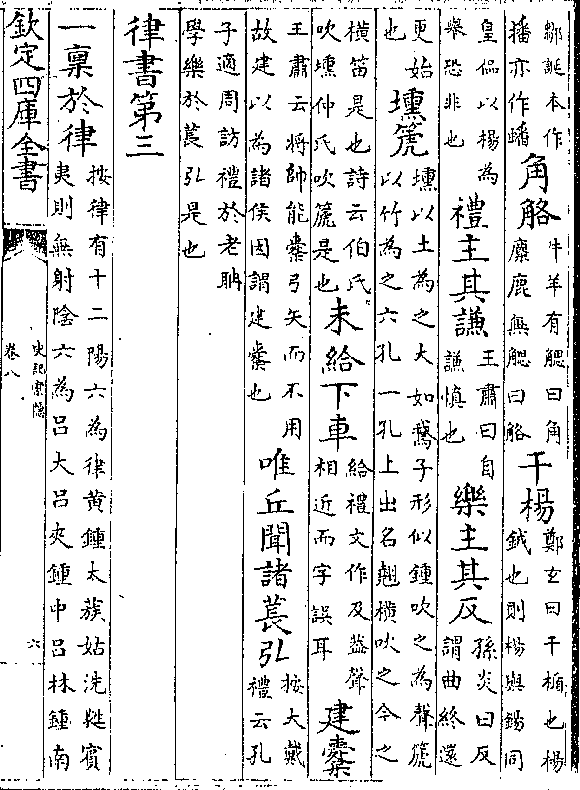 鄒誕本作播亦作蟠角觡牛羊有䚡曰角麋鹿無䚡曰觡干楊鄭玄曰干楯也楊鉞也則楊與鍚同
皇侃以楊為舉恐非也禮主其謙王肅曰自謙慎也樂主其反孫炎曰反謂曲終還
更始也壎篪壎以土為之大如鵝子形似鍾吹之為聲篪以竹為之六孔一孔上出名翹橫吹之今之
橫笛是也詩云伯氏吹壎仲氏吹篪是也未給下車給禮文作及蓋聲相近而字誤耳建櫜
王肅云將帥能櫜弓矢而不用故建以為諸侯因謂建櫜也唯丘聞諸萇弘按大戴禮云孔
子適周訪禮於老聃學樂於萇弘是也
律書第三
一稟於律按律有十二陽六為律黃鍾太蔟姑洗蕤賓夷則無射陰六為呂大呂夾鍾中呂林鍾南
欽定四庫全書
史記索隱
卷八
六